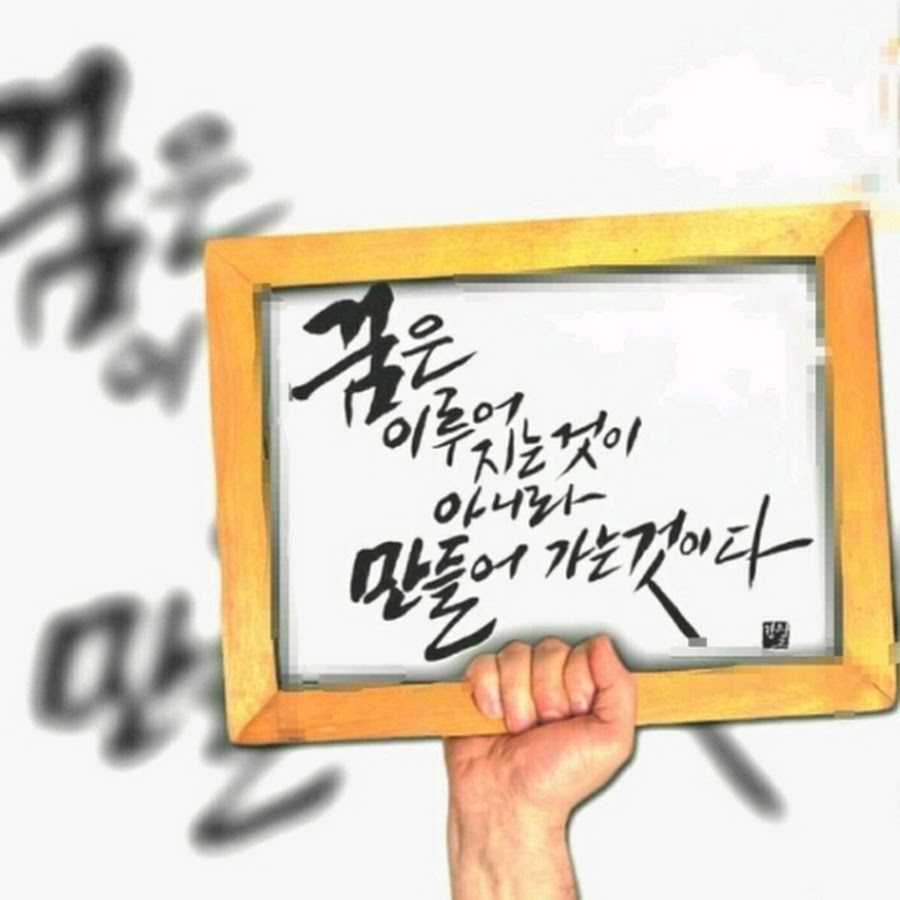 꿈은
이루어
지는 것이
아니라
만들어 가는것이다